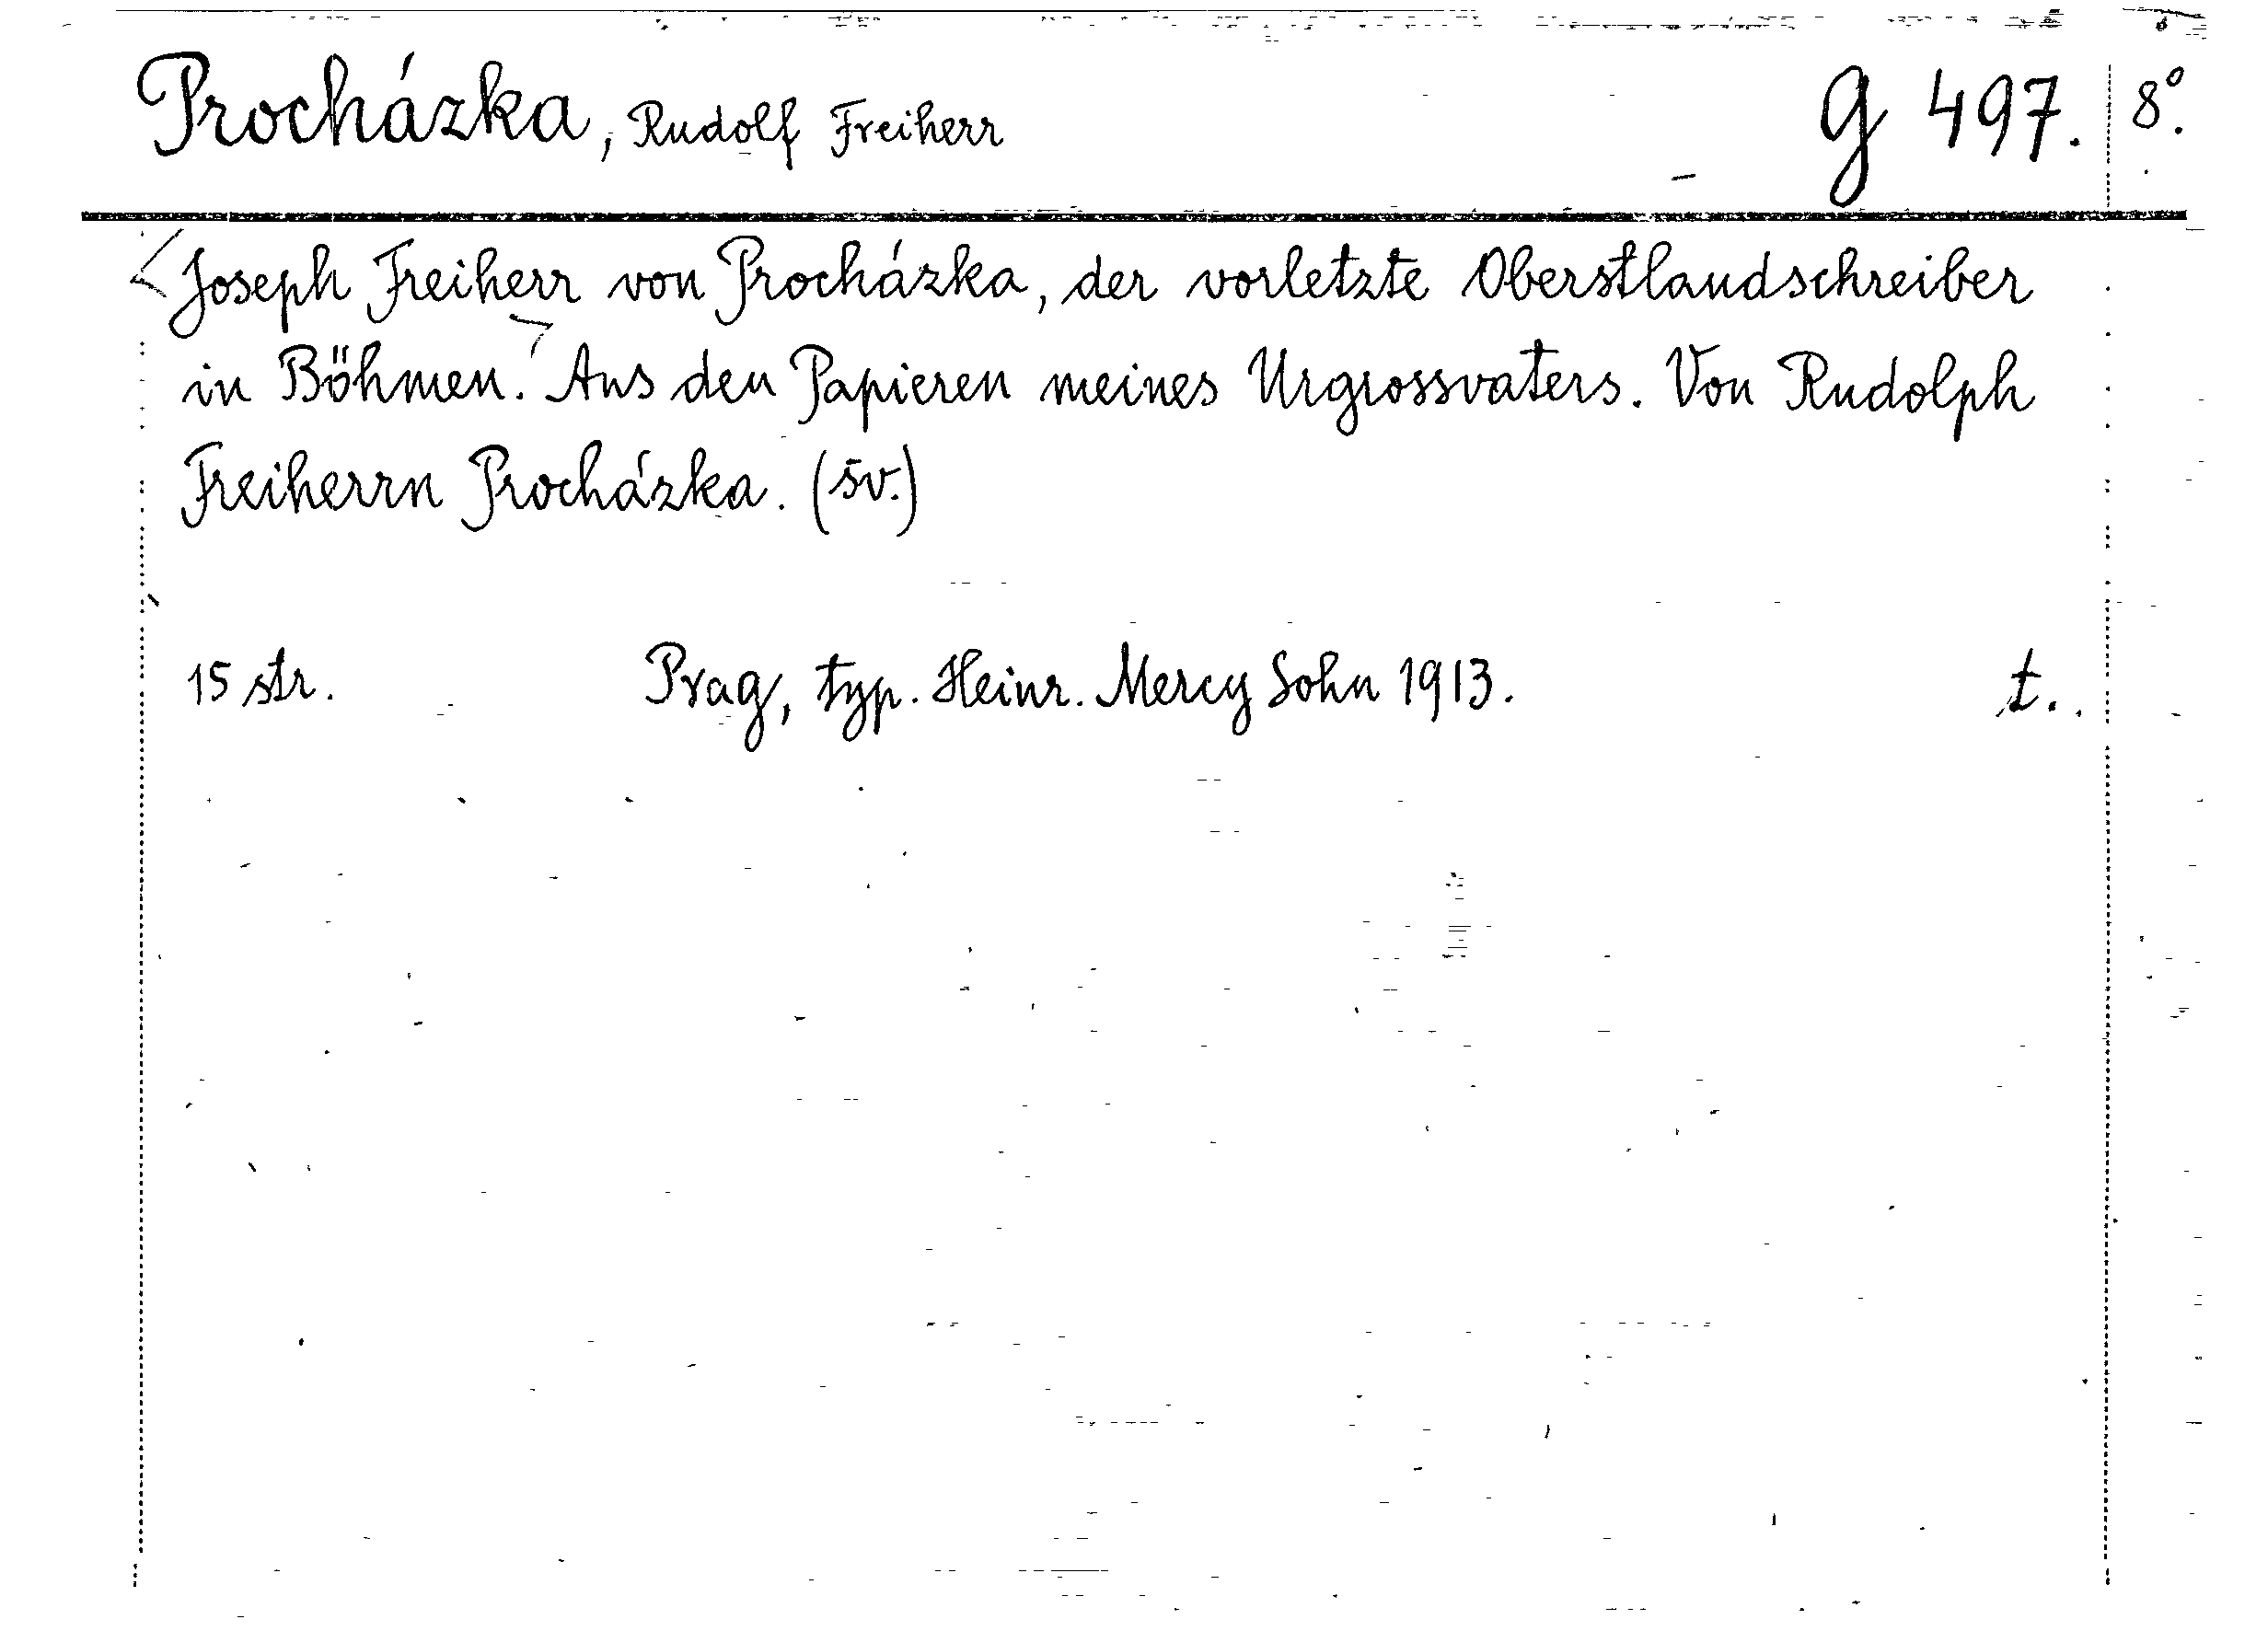 Procházka, Rudolf Freiherr g 497. 8°.
<Joseph Freiherr von Procházka, der vorletzte Oberstlandschreiber
in Böhmen.> Aus den Papieren meines Urgrossvaters. Von Rudolph
Freiherrn Procházka. (šv.)
15 str. Prag, typ. Heinr. Mercy Sohn 1913. t.